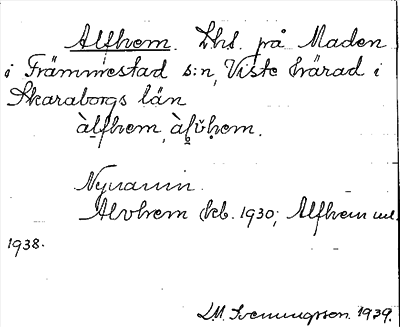 Alfhem. Lhs. på Maden
i Främmestad s:n, Viste härad i
Skaraborgs län
àlfhem, àlv̆hem.
Nynamn.
Alvhem beb. 1930; Alfhem
1938.
L.M. Svenungsson. 1939.